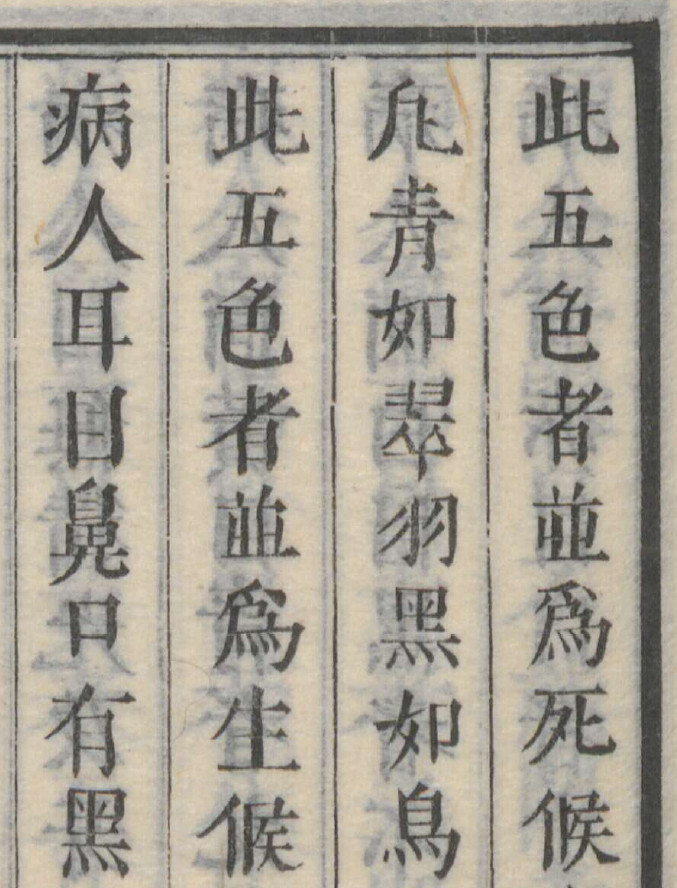 此五色者並為死候
凡青如翠羽黑如烏
此五色者並為生候
病人耳目鼻口有黑